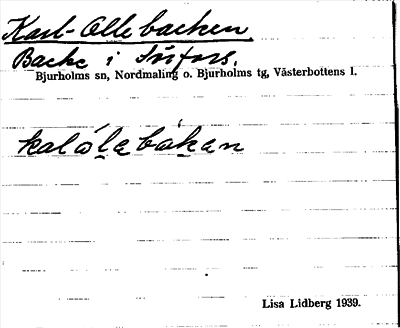 Karl-Olle backen
Backe i
Bjurholms sn, Nordmaling o. Bjurholms tg, Västerbottens l.
Lisa Lidberg 1939.